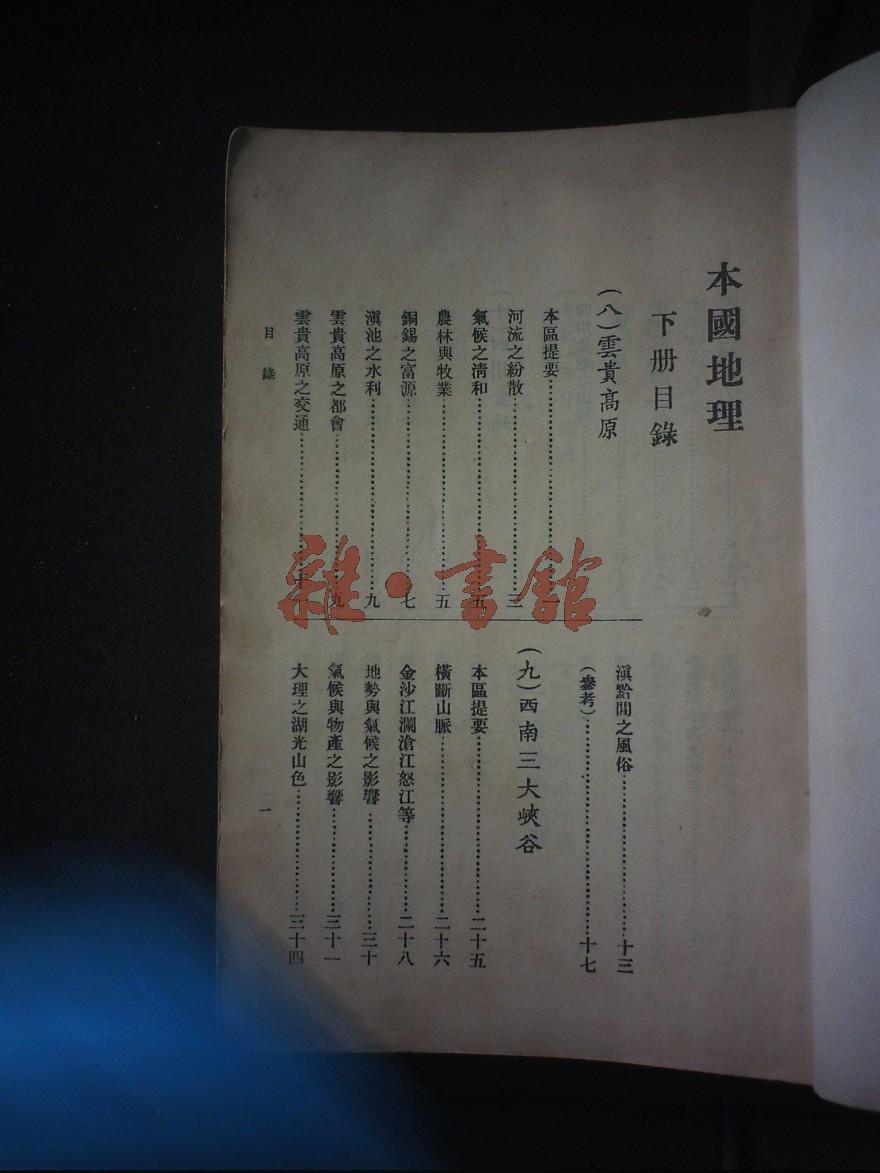 本國地理
下册目錄
(八)雲貴高原
本區提要
河流之紛散 三
氣候之清和 五
農林與牧業 五
銅錫之富源 七
滇池之水利 九
雲貴高原之都會 九
雲貴高原之交通
滇黔間之風俗 十三
(參考) 十七
(九)西南三大峽谷
本區提要 二十五
橫斷山脈 二十六
金沙江瀾滄江怒江等 二十八
地勢與氣候之影響 三十
氣候與物產之影響 三十一
大理之湖光山色 三十四
目錄
一
雜·書館